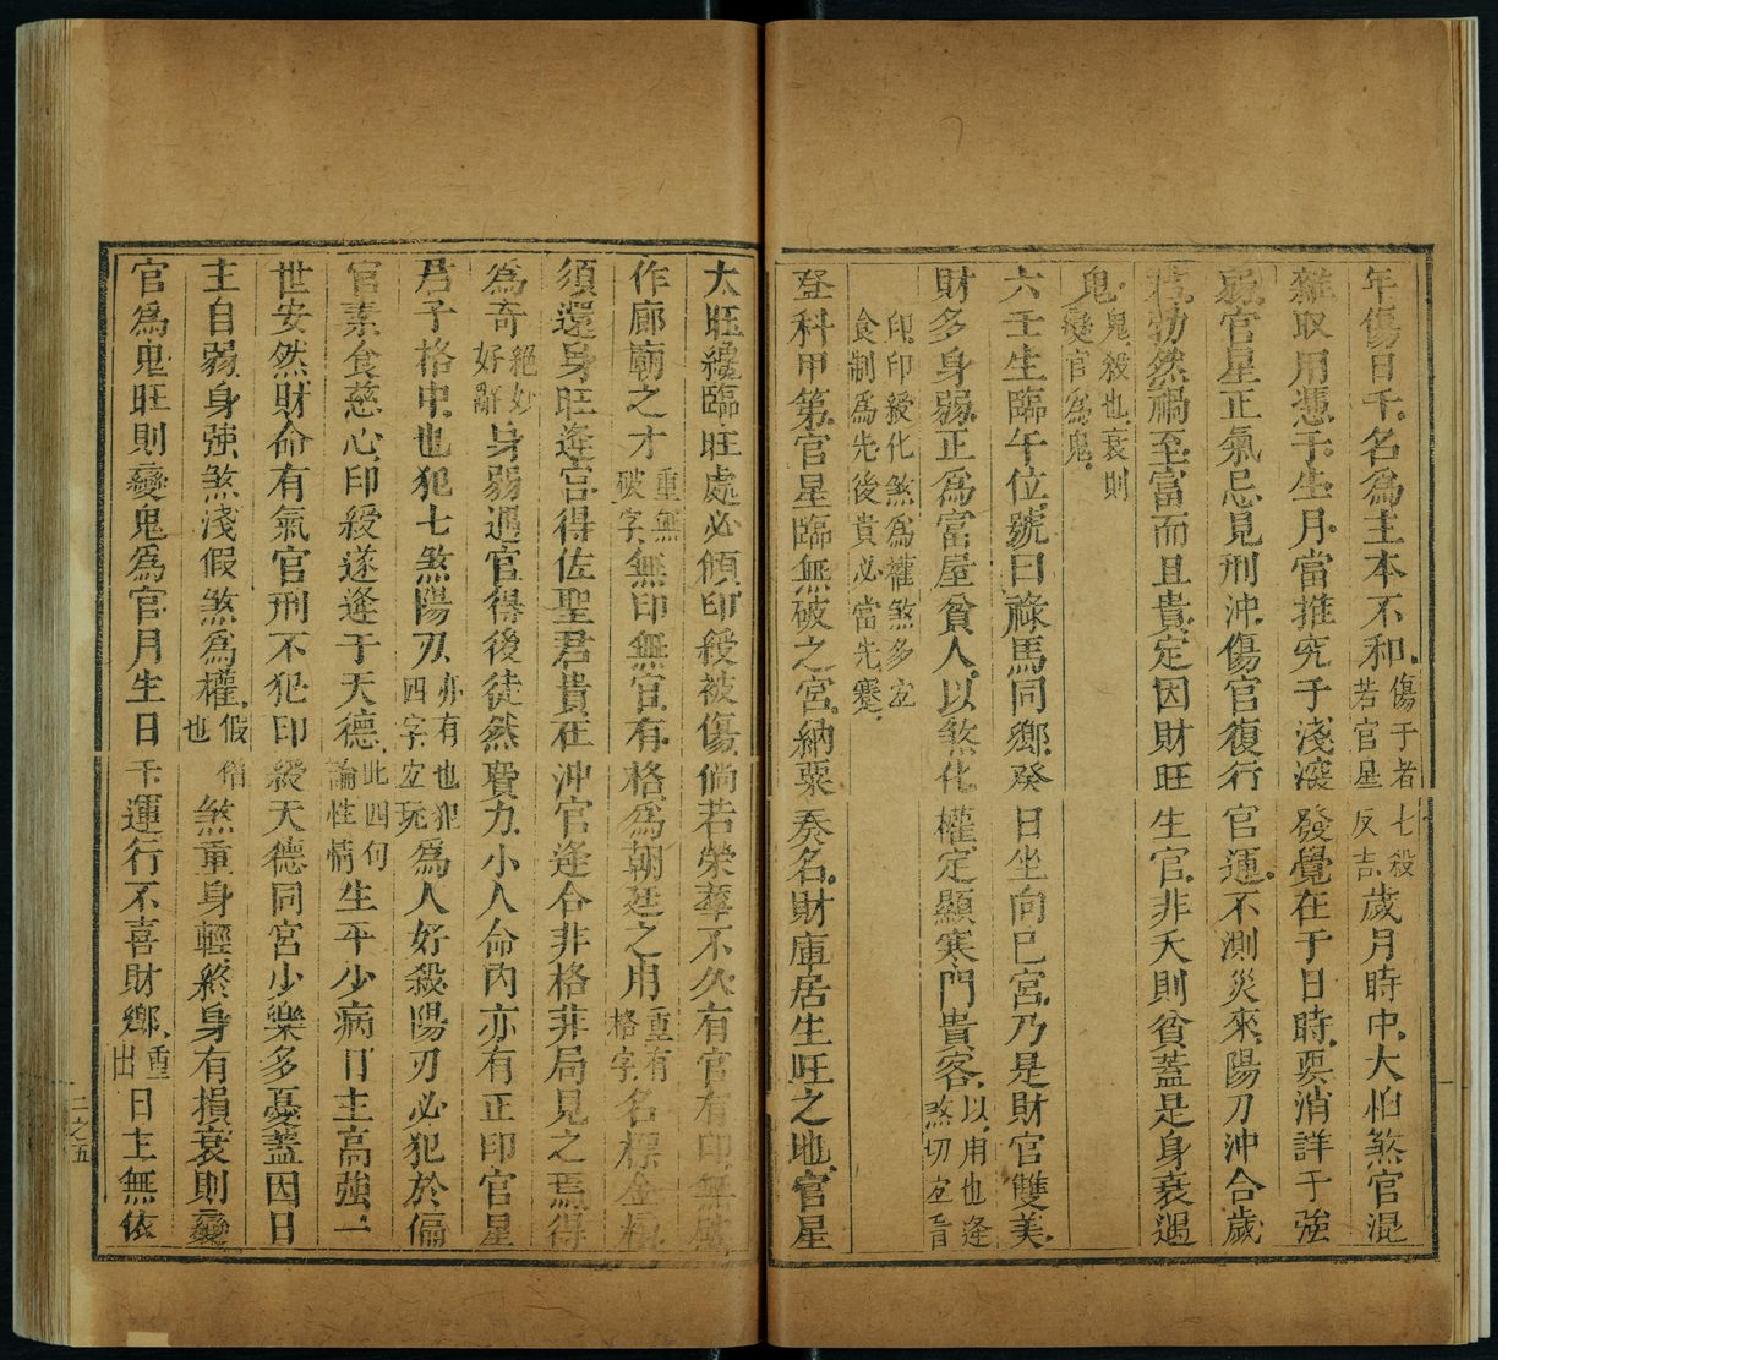 年傷日干名爲主本不和傷于者七殺若官星反吉歲月時中大怕煞官混
雜取用憑于生月當推究于淺深發覺在于日時要消詳于強
弱官星正氣忌見刑沖傷官復行官運不測災來陽刀沖合歲
君勃然禍至富而且貴定因財旺生官非夭則貧蓋是身衰遇
鬼鬼殺也衰則變官爲鬼
六壬生臨午位號曰祿馬同鄉癸日坐向巳宮乃是財官雙美
財多身弱正爲富屋貧人以煞化權定顯寒門貴客以用也逢煞切宜
印印綬化煞爲權煞多宜食制爲先後貴必當先蹇
登科甲第官星臨無破之宮納粟奏名財庫居生旺之地官星
太旺纔臨旺處必傾印綬被傷倘若榮華不久有官有印無破
作廊廟之才重無破字無印無官有格爲朝廷之用重有格字名標金榜
須還身旺逢宮得佐聖君貴在沖官逢合非格非局見之焉得
爲奇絕妙好辭身弱遇官得後徒然費力小人命內亦有正印官星
君子格中也犯七煞陽刃亦有也犯四字宜玩爲人好殺陽刃必犯於偏
官素食慈心印綬遂逢于天德此四句論性情生平少病日主高強一
世安然財命有氣官刑不犯印綬天德同宮少樂多憂蓋因日
主自弱身強煞淺假煞爲權假借也煞重身輕終身有損衰則變
官爲鬼旺則變鬼爲官月生日干運行不喜財鄉重出日主無依
二之五